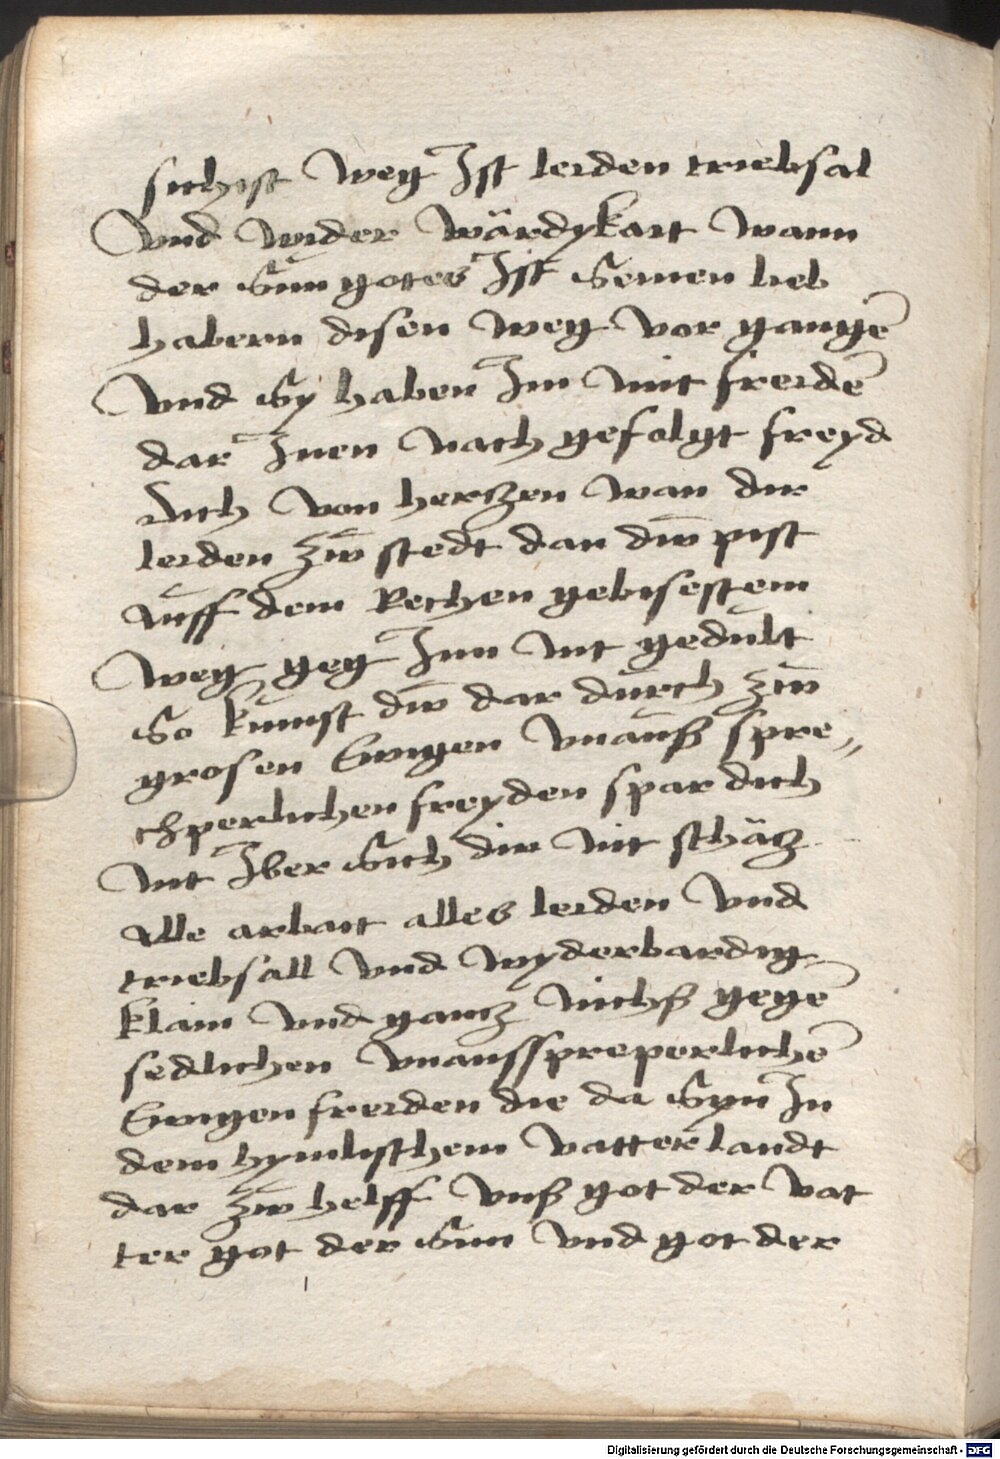 sichist weg Ist leiden triebsal
vnd wyder wärdykait wann
der Sun gotes Ist Seinen lieb
habern disen weg vor gangē
vnd Sy haben Im mit freidē
dar Inen nach gefolgt freyd
dich von herczen wan dir
leiden zw̄ stedt dan dw̄ pist
auff dem Rechen gebisestem
weg geg Inn nit gedult
So kumst dw̄ dar durch zw̄
grosen Ewigen vnauß spre„
chperlichen freyden spar dich
nit Iber Sich dir nit schäcz
alle arbait alles leiden vnd
triebsall vnd wyderbardig-
klain vnd gancz nichß gegē
sedlichen vnausspreperlichē
Ewigen freiden die da Syn In
dem hymlischem vatterlandt
dar zw̄ helff vnß got der vat
ter got der Sun vnd got der
Digitalisierung gefördert durch die Deutsche Forschungsgemeinschaft - DFG